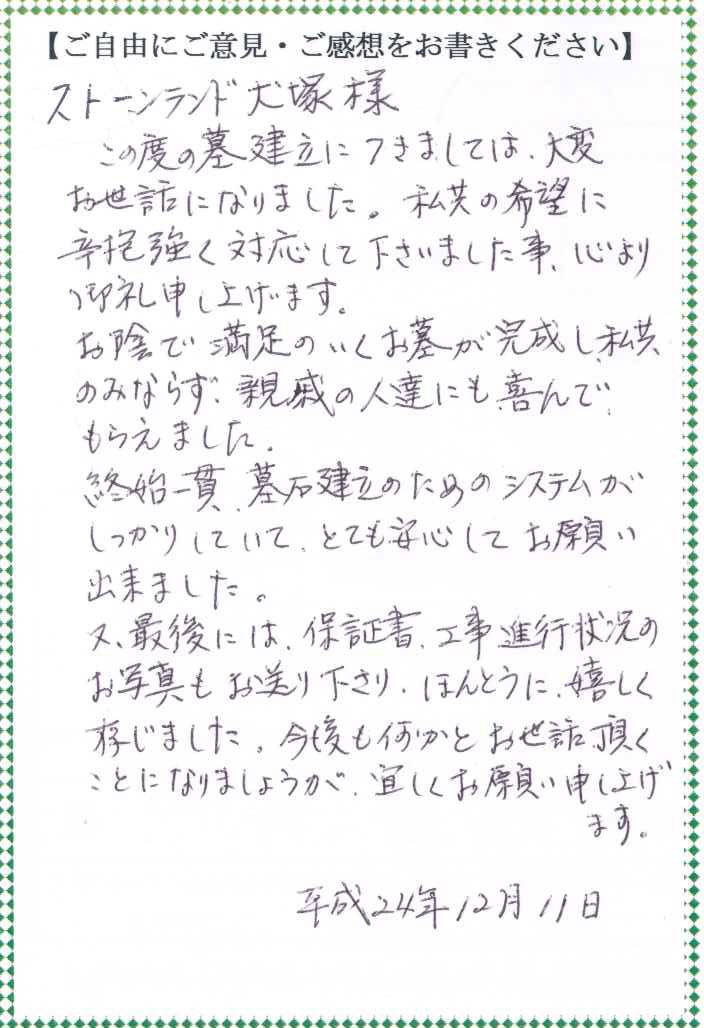 【ご自由にご意見・ご感想をお書きください】
ストーンランド犬塚様
この度の墓建立につきましては、大変
お世話になりました。私共の希望に
辛抱強く対応して下さいました事、心より
御礼申し上げます。
お陰で満足のいくお墓が完成し、私共
のみならず、親戚の人達にも喜んで
もらえました。
終始一貫、墓石建立のためのシステムが
しっかりしていて、とても安心してお願い
出来ました。
又、最後には、保証書、工事進行状況の
お写真もお送り下さり、ほんとうに、嬉しく
存じました。今後も何かとお世話頂く
ことになりましょうが、宜しくお願い申し上げ
ます。
平成24年12月11日